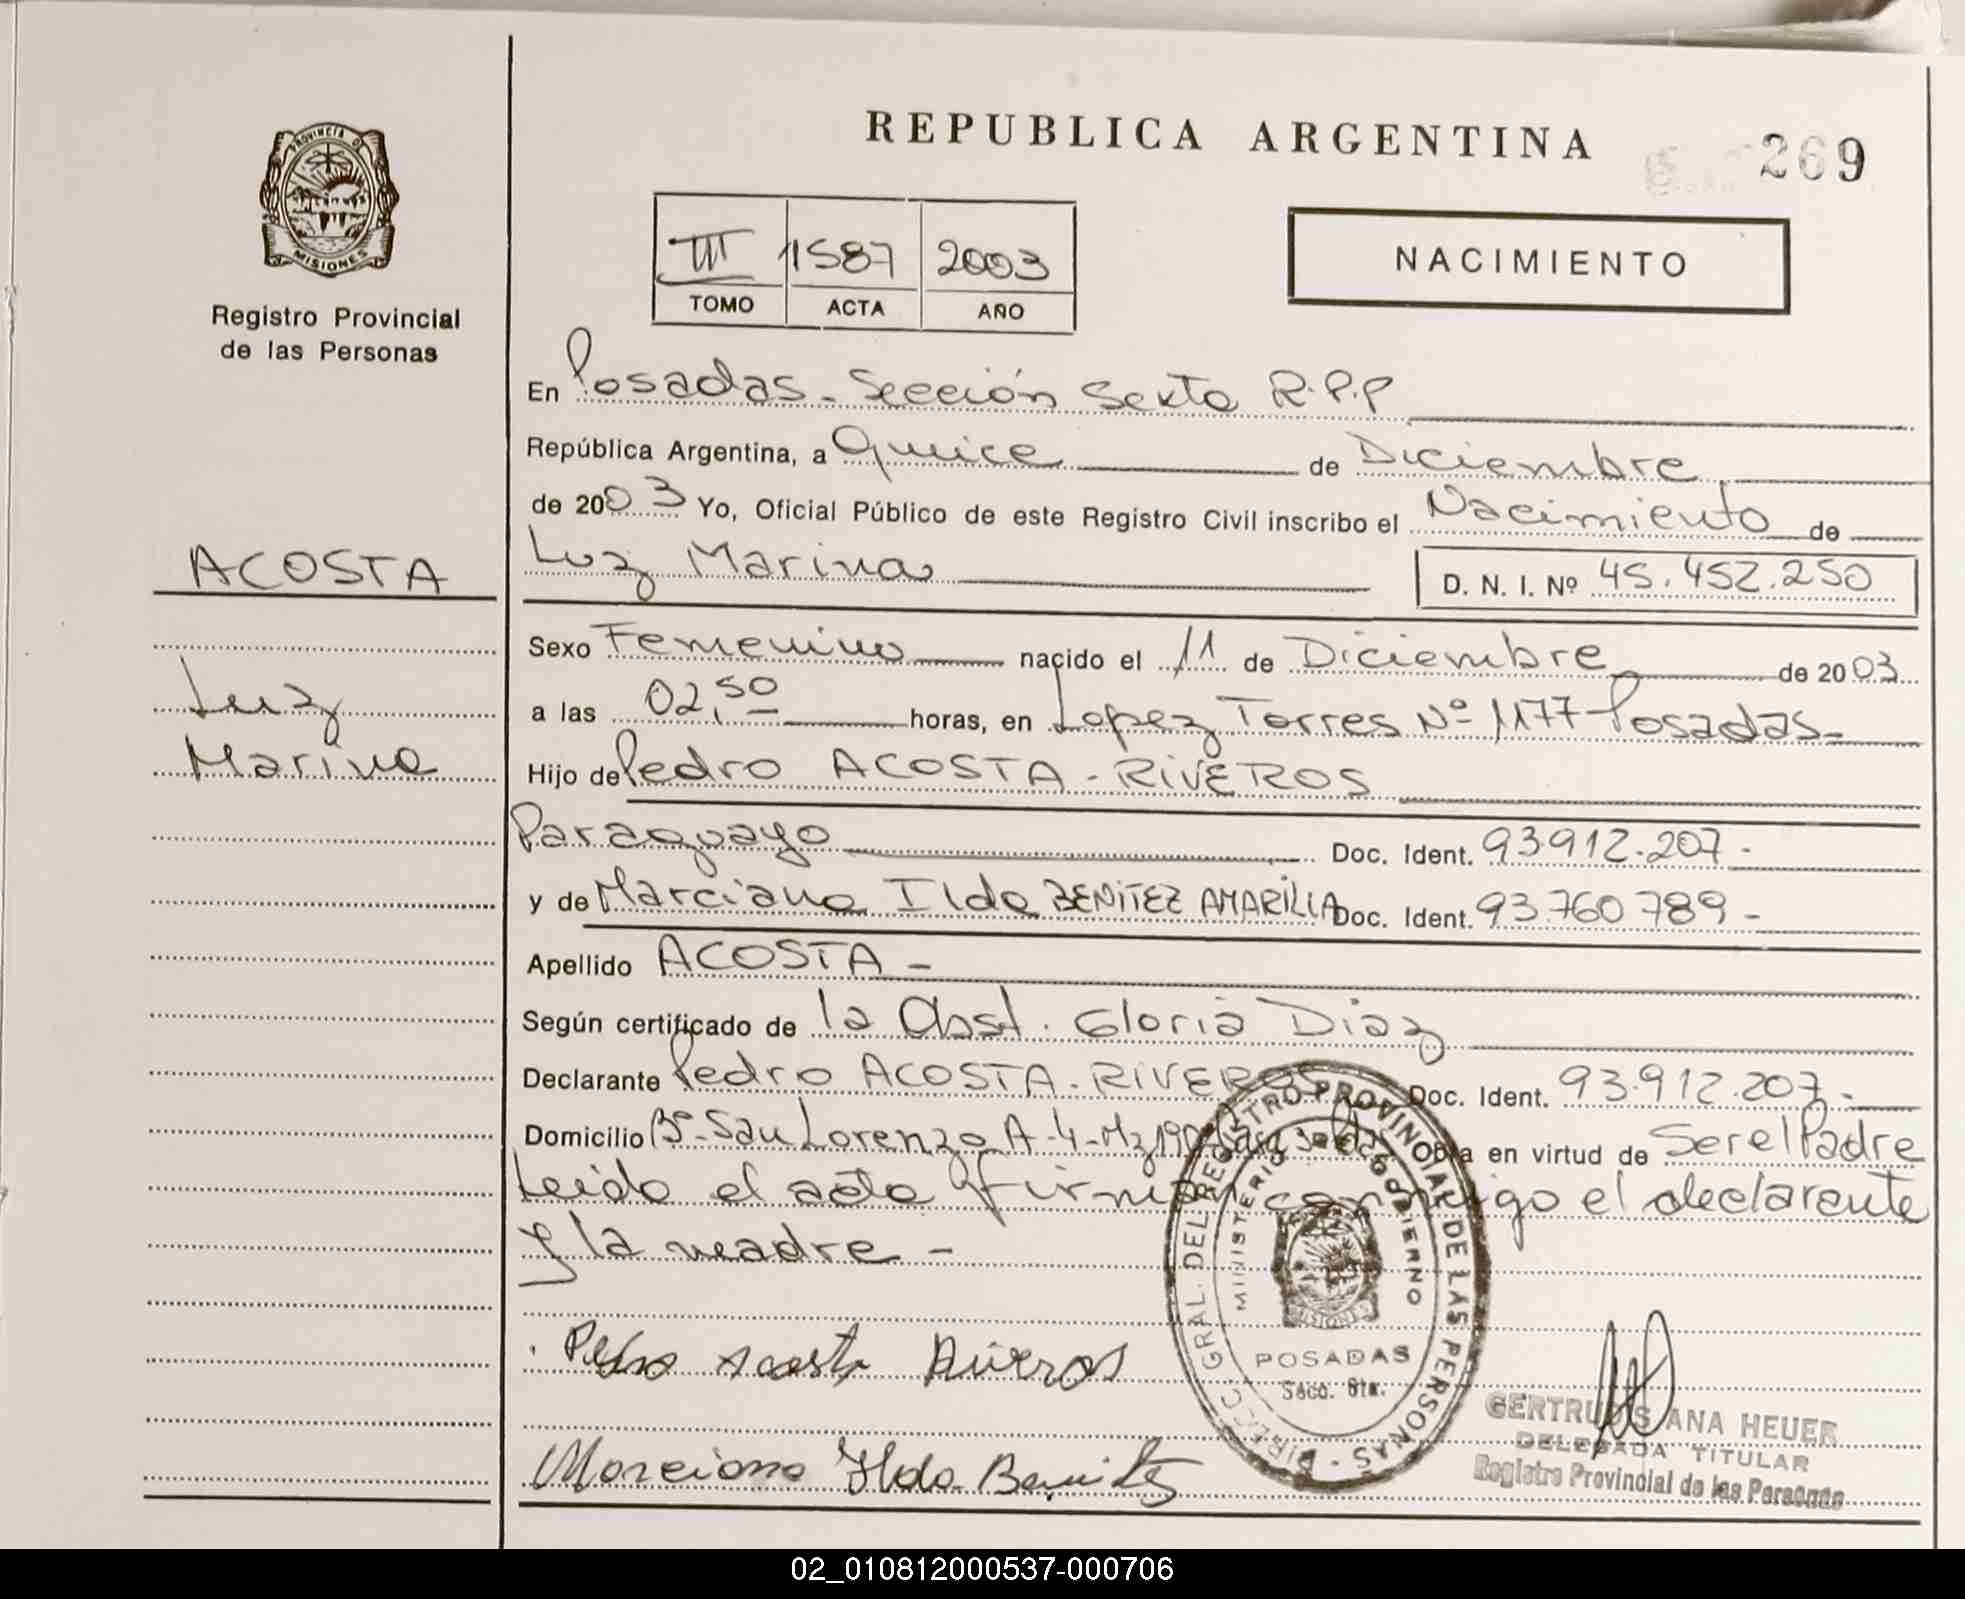 REPUBLICA ARGENTINA
269
PROVINCIA DE
MISIONES
Registro Provincial
de las Personas
III 1587 2003
TOMO ACTA AÑO
NACIMIENTO
En Posadas - Sección Sexta R.P.P
República Argentina, a Quince de Diciembre
de 2003 Yo, Oficial Público de este Registro Civil inscribo el Nacimiento de
ACOSTA
Luz Marina D. N. I. Nº 45.452.250
Sexo Femenino nacido el 11 de Diciembre de 2003
Luz
a las 02,50 horas, en Lopez Torres Nº 1177 - Posadas -
Marina
Hijo de Pedro ACOSTA - RIVEROS
Paraguayo Doc. Ident. 93912.207 -
y de Marciana Ilda BENITEZ AMARILIA Doc. Ident. 93.760789 -
Apellido ACOSTA -
Según certificado de la Obst. Gloria Diaz
Declarante Pedro ACOSTA - RIVEROS Doc. Ident. 93.912.207 -
Domicilio Bº San Lorenzo A-4-Mz 190 Obra en virtud de Ser el Padre
Leido el acta firman conmigo el declarante
y la madre -
Pedro Acosta Riveros
Marciana Ilda Benitez
DIRECC. GRAL. DEL REGISTRO PROVINCIAL DE LAS PERSONAS -
MINISTERIO DE GOBIERNO
MISIONES
POSADAS
Secc. 6ta.
GERTRUDIS ANA HEUER
DELEGADA TITULAR
Registro Provincial de las Personas
02_010812000537-000706